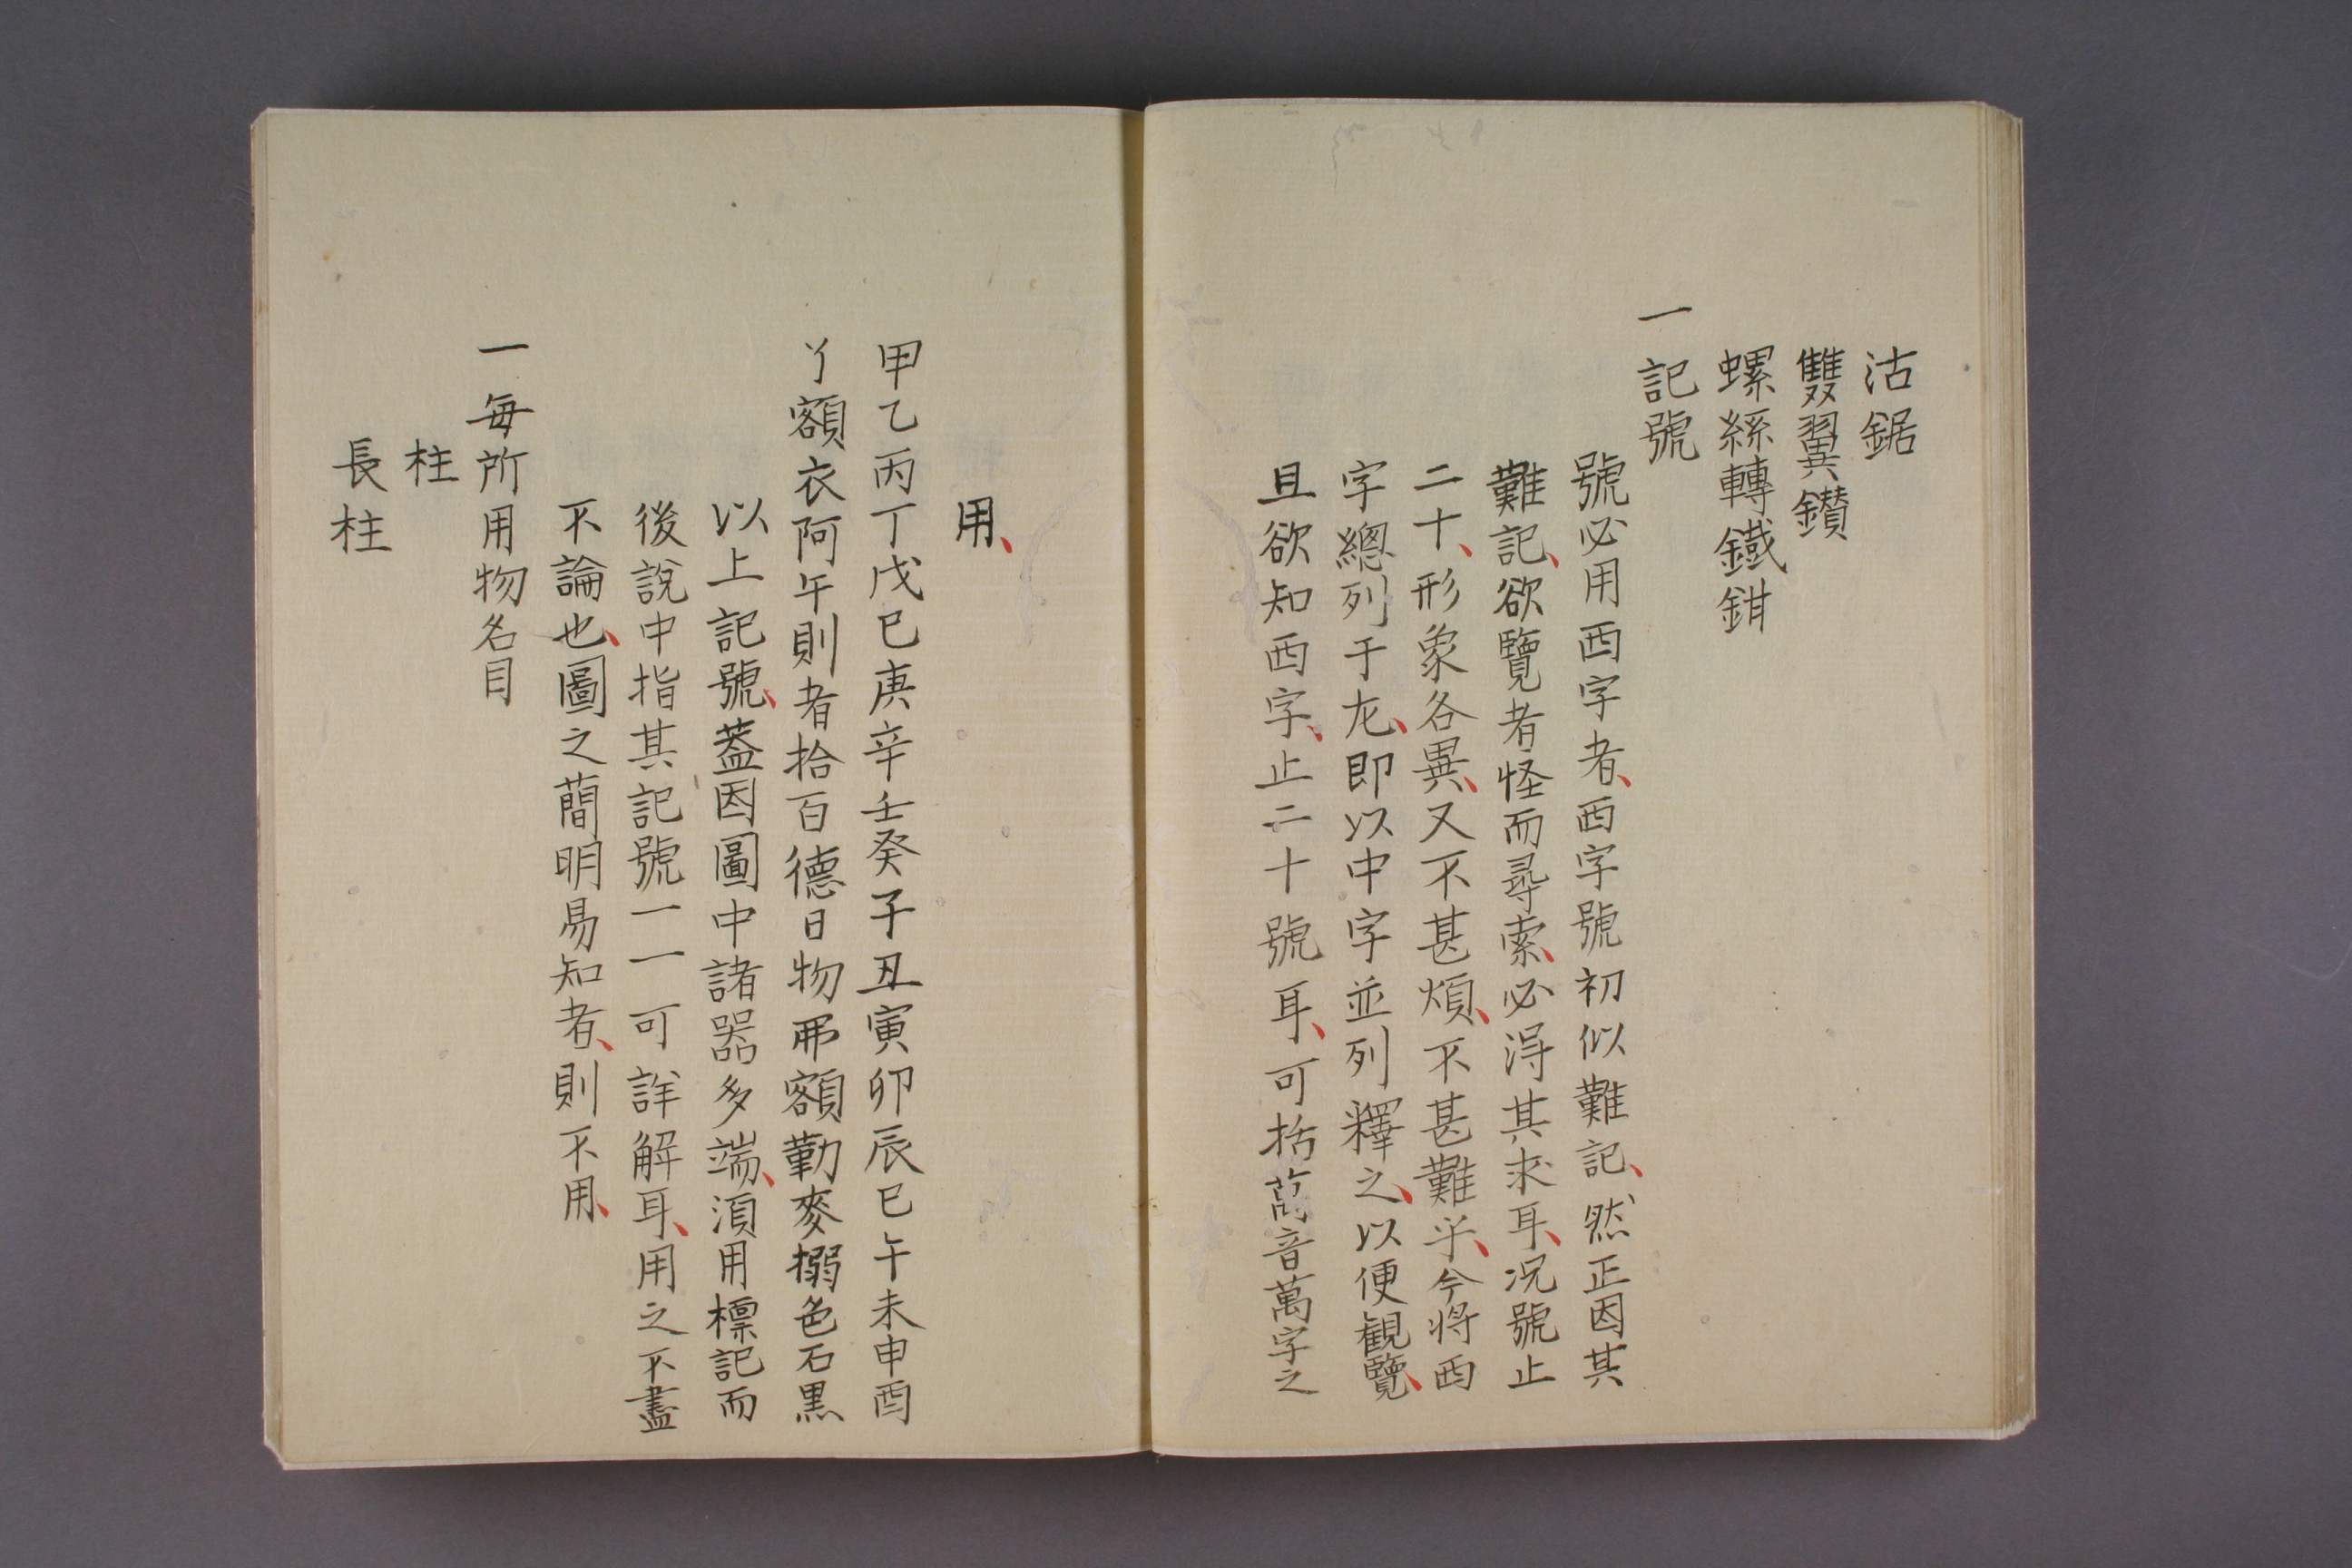 沽鋸
雙翼鑽
螺絲轉鐵鉗
一記號
號必用西字者、西字號初似難記、然正因其
難記、欲覽者怪而尋索、必淂其求耳、况號止
二十、形象各異、又不甚煩、不甚難乎、今將西
字總列于尤、即以中字並列釋之、以便観覽、
且欲知西字、止二十號耳、可括萬音萬字之
用、
甲乙丙丁戊巳庚辛壬癸子丑寅卯辰巳午未申酉
丫額衣阿午則者拾百德日物弗額勤麥搦色石黒
以上記號、葢因圖中諸器多端、湏用標記而
後説中指其記號一一可詳解耳、用之不盡
不論也、圖之蕳明易知者、則不用、
一每所用物名目
柱
長柱